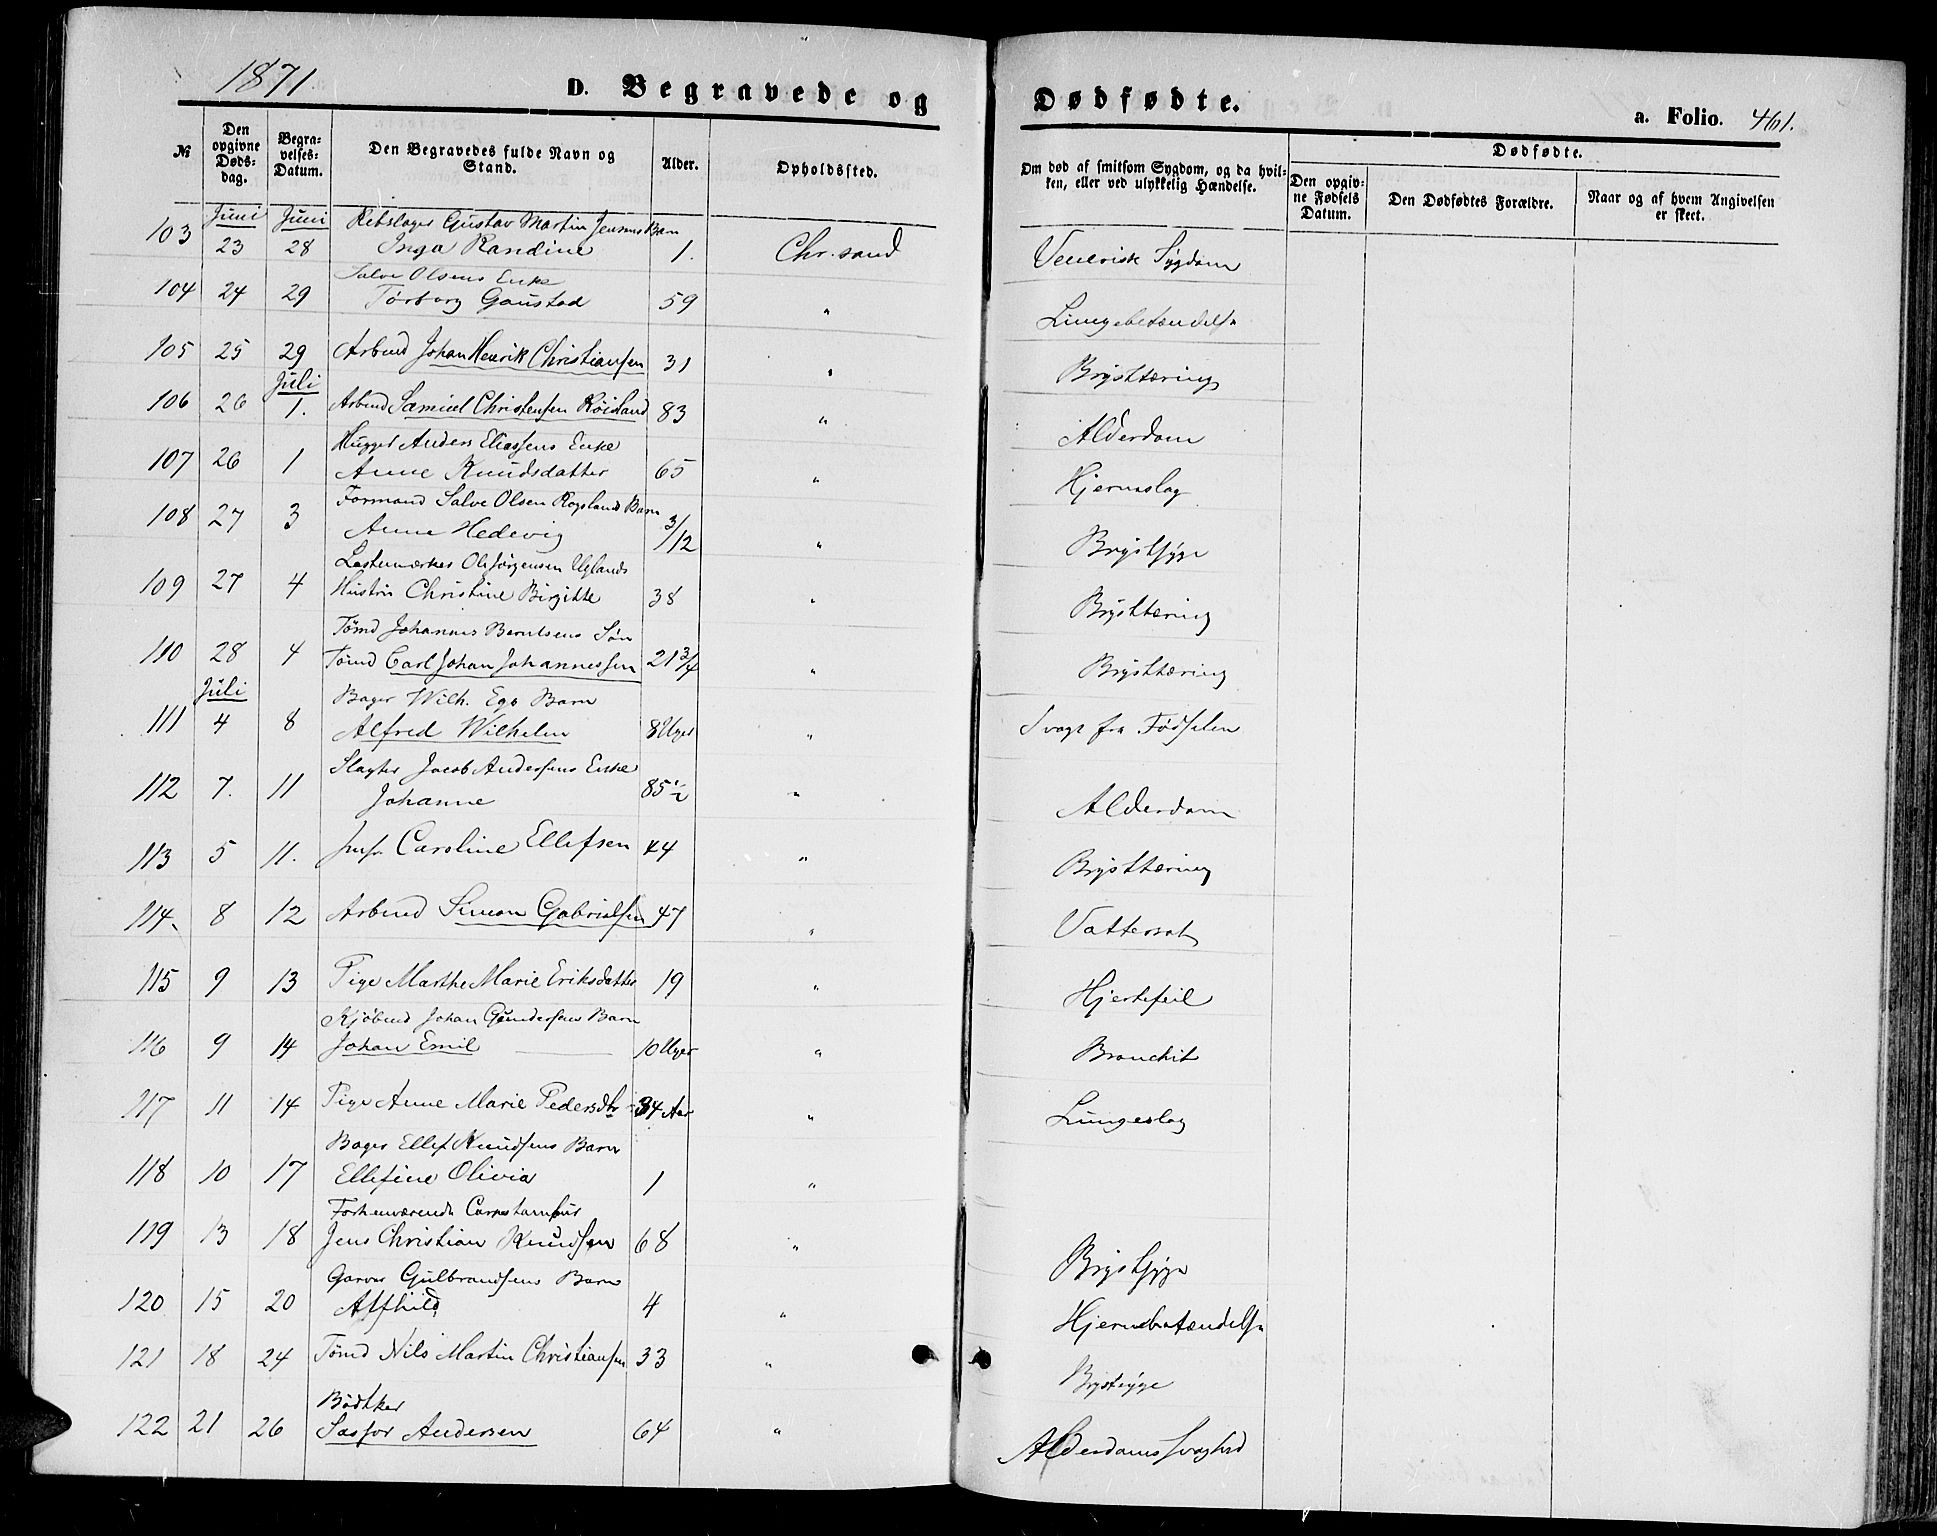 1871.
D. Begravede og Dødfødte.
a. Folio. 461.
№ Den opgivne Døds-dag. Begra-velses-Datum. Den Begravedes fulde Navn og Stand. Alder. Opholdssted. Om død af smitsom Sygdom, og da hvil-ken, eller ved ulykkelig Hændelse. Dødfødte. Den opgiv-ne Fødsels Datum. Den Dødfødtes Forældre. Naar og af hvem Angivelsen er skeet.
Juni Juni Rebslager Gustav Martin Jensens Barn
103 23 28 Inga Randine 1. Chr.sand Venerisk Sygdom
Salve Olsens Enke
104 24 29 Torborg Gaustad 59 " Lungebetændelse
105 25 29 Arbmd Johan Henrik Christiansen 31 " Brysttæring
Juli
106 26 1. Arbmd Samuel Christensen Røisland 83 " Alderdom
Anders Eliassens Enke
107 26 1 Anne Knudsdatter 65 " Hjerneslag
Formand Salve Olsen Rogslands Barn
108 27 3 Anne Hedevig 3/12 " Brystsyge
Ole Jørgensen Uglands
109 27 4 Hustru Christine Birgitte 38 " Brysttæring
Tømd Johannes Berntsens Søn
110 28 4 Tømd Carl Johan Johannessen 21 3/4 " Brysttæring
Juli Bager Wilh. Egs Barn
111 4 8 Alfred Wilhelm 8 Uger " Svag fra Fødselen
Slagter Jacob Andersens Enke
112 7. 11 Johanne 85 1/2 " Alderdom
113 5 11. Jmfr. Caroline Ellefsen 44 " Brysttæring
114. 8 12 Arbmd Simon Gabrielsen 47 " Vattersot
115 9 13 Pige Marthe Marie Eriksdatter 19 " Hjertefeil
Kjøbmd Johan Gundersens Barn
116 9 14 Johan Emil 10 Uger " Bronchit
117 11 14 Pige Anne Marie Pedersdtr 34 Aar " Lungeslag
Bager Ellef Knudsens Barn
118 10 17 Ellefine Olivia 1 "
Forhenværende
119 13 18 Jens Christian Knudsen 68 " Brystsyge
Garver Gulbrandsens Barn
120 15 20 Alfhild 4 " Hjernebetændelse
121 18 24 Tømd Nils Martin Christiansen 33 " Brystsyge
Bødtker
122 21 26 Andersen 64 " Alderdomssvaghed